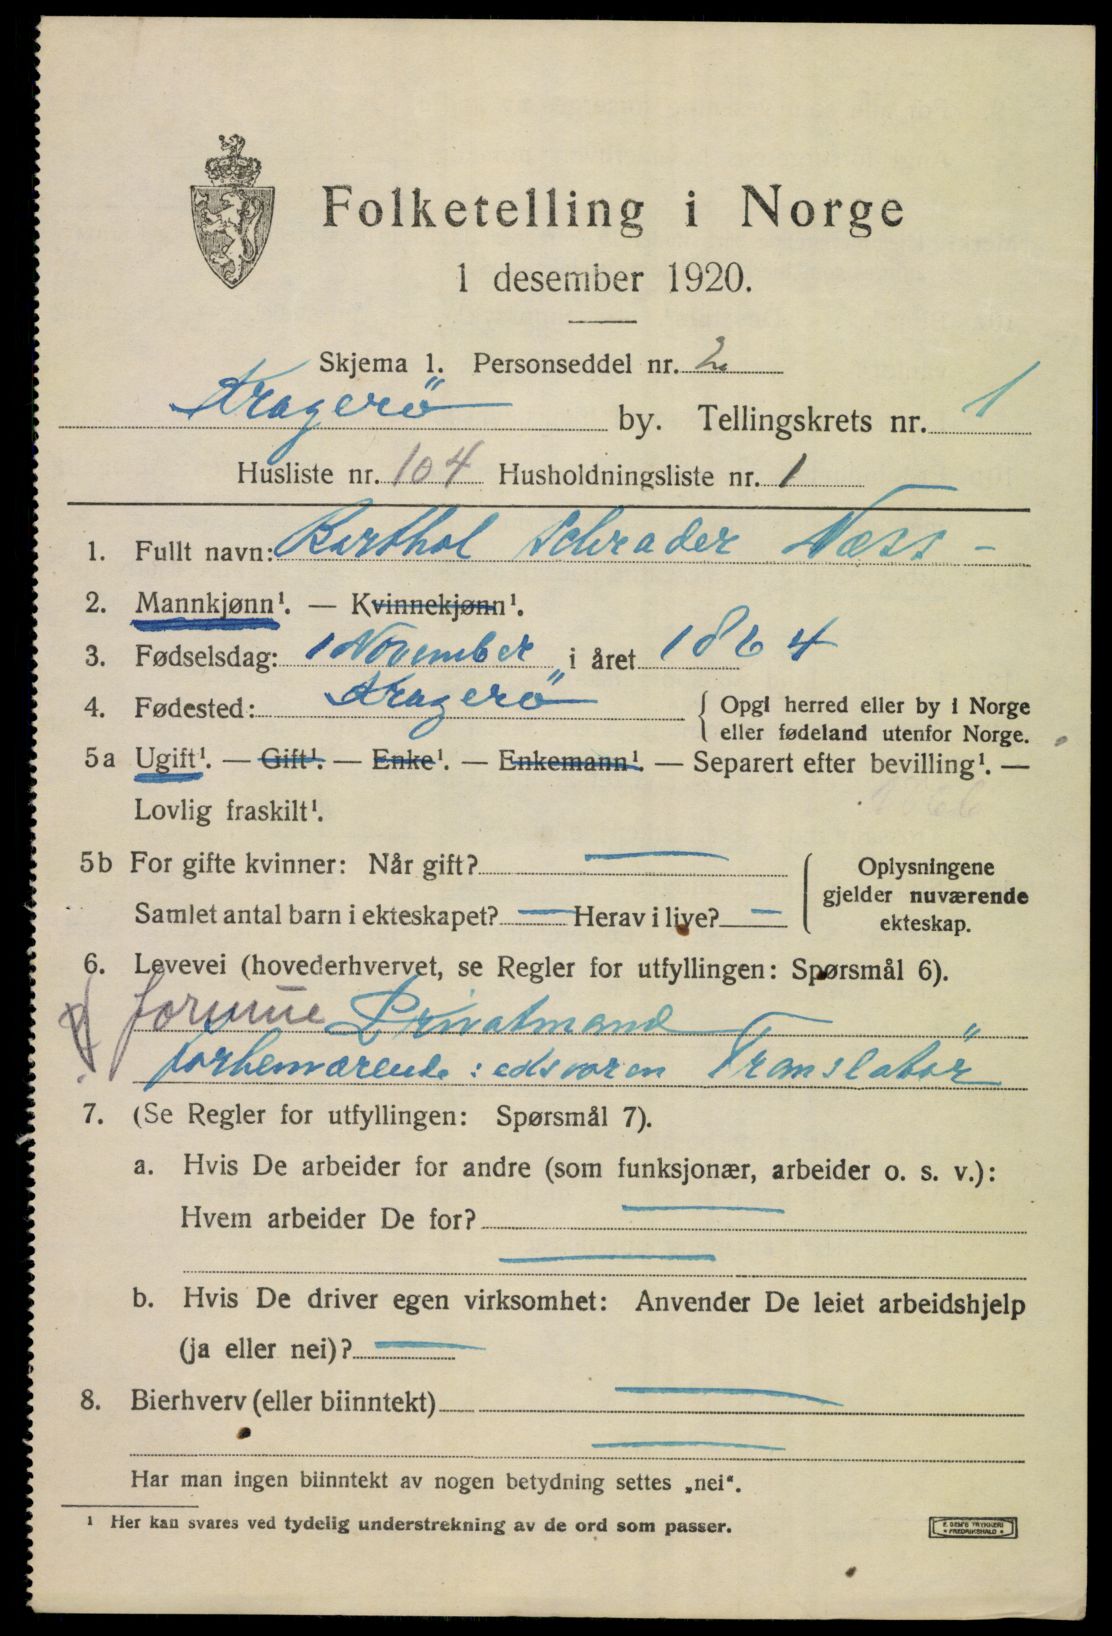 Folketelling i Norge
1 desember 1920.
Skjema 1. Personseddel nr. 2
Kragerö by. Tellingskrets nr. 1
Husliste nr. 104 Husholdningsliste nr. 1
1. Fullt navn: Barthol Schrader Næss -
2. Mannkjønn¹. — Kvinnekjønn¹.
3. Fødselsdag: 1 November i året 1864
4. Fødested: Kragerö { Opgi herred eller by i Norge
eller fødeland utenfor Norge.
5a Ugift¹. — Gift¹. — Enke¹. — Enkemann¹. — Separert efter bevilling¹. —
Lovlig fraskilt¹.
5b For gifte kvinner: Når gift? — { Oplysningene
gjelder nuværende
Samlet antal barn i ekteskapet? — Herav i live? —
ekteskap.
6. Levevei (hovederhvervet, se Regler for utfyllingen: Spørsmål 6).
formue Privatmand
forhenværende: edsvoren Translatör
7. (Se Regler for utfyllingen: Spørsmål 7).
a. Hvis De arbeider for andre (som funksjonær, arbeider o. s. v.):
Hvem arbeider De for? —
—
b. Hvis De driver egen virksomhet: Anvender De leiet arbeidshjelp
(ja eller nei)? —
8. Bierhverv (eller biinntekt) —
—
Har man ingen biinntekt av nogen betydning settes „nei“.
¹ Her kan svares ved tydelig understrekning av de ord som passer.
E. SEM'S TRYKKERI
• FREDRIKSHALD •